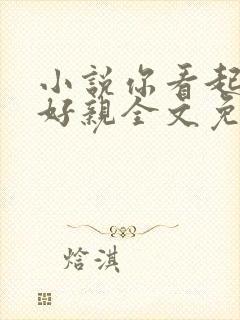 小説你看起
好親全文免
焓淇